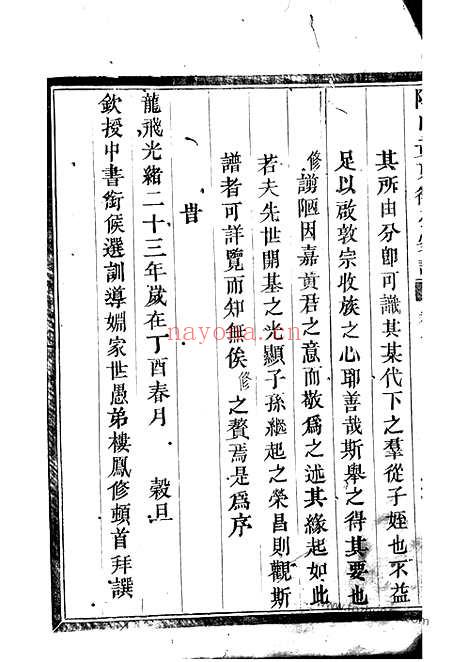 其所由分卽可識其某代下之羣從子姪也不益
足以啟敦宗收族之心耶善哉斯舉之得其要也
修謭陋因嘉黃君之意而敬爲之述其緣起如此
若夫先世開基之光顯子孫繼起之榮昌則觀斯
譜者可詳覽而知無俟修之贅焉是爲序
旹
龍飛光緒二十三年歲在丁酉春月 穀旦
欽授中書銜候選訓導姻家世愚弟樓鳳修頓首拜譔
nayona.cn